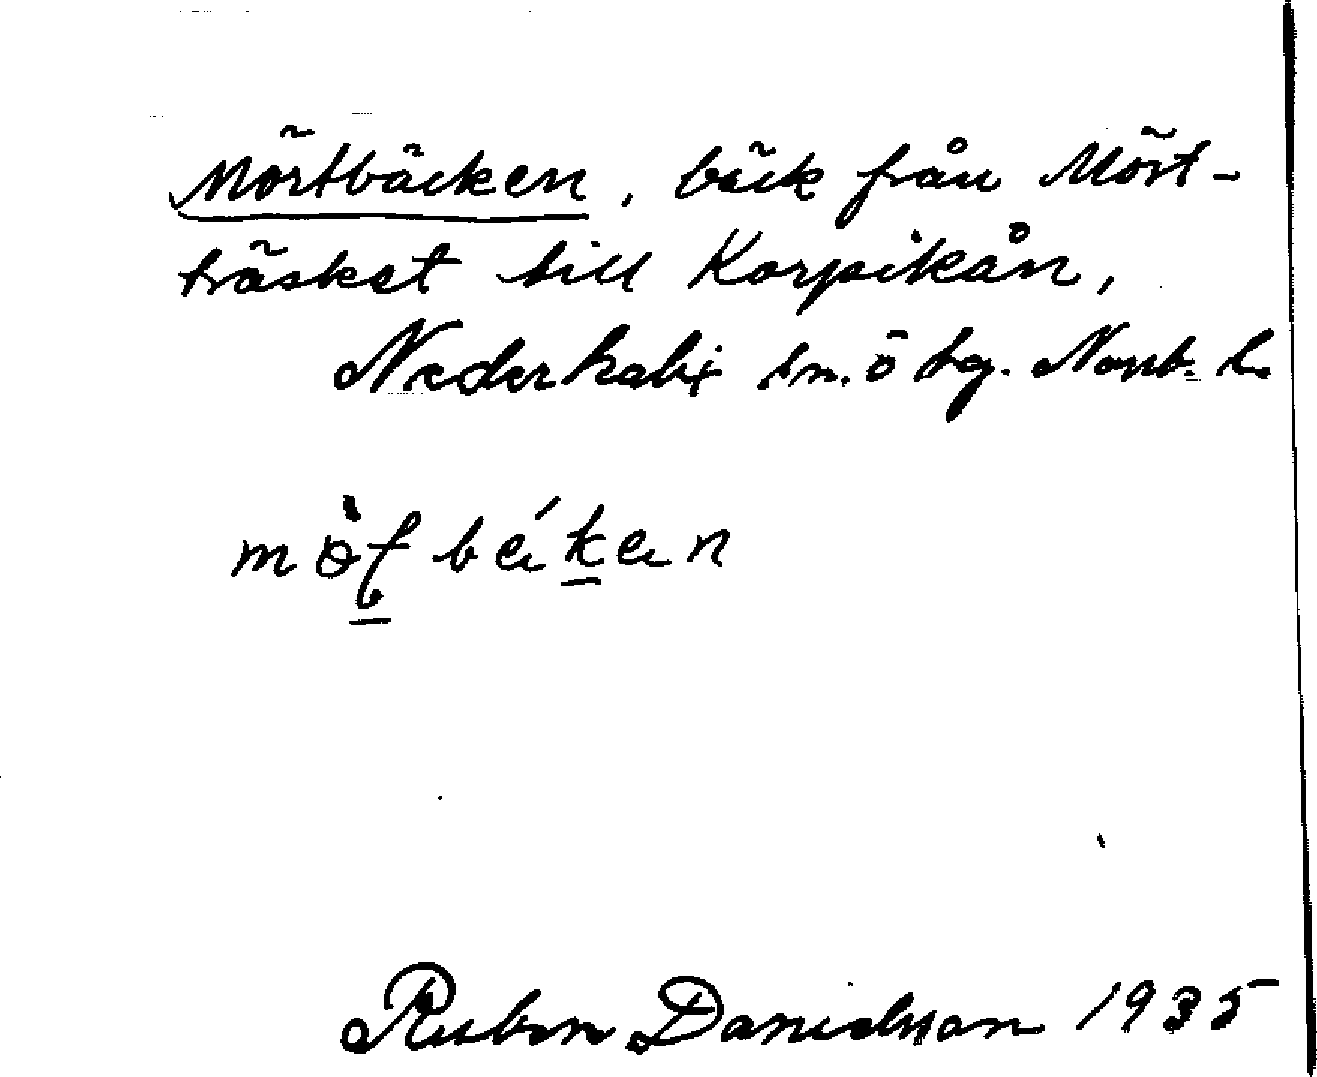 Mörtbäcken, bäck från Mört-
träsket till Korpikån,
Nederkalix sn. ö tg. Norrb. l.
Ruben Danielsson 1935